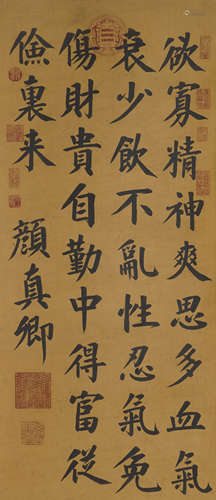 欲寡精神爽思多血氣
衰少飲不亂性忍氣免
傷財貴自勤中得富從
儉裏来 顏真卿